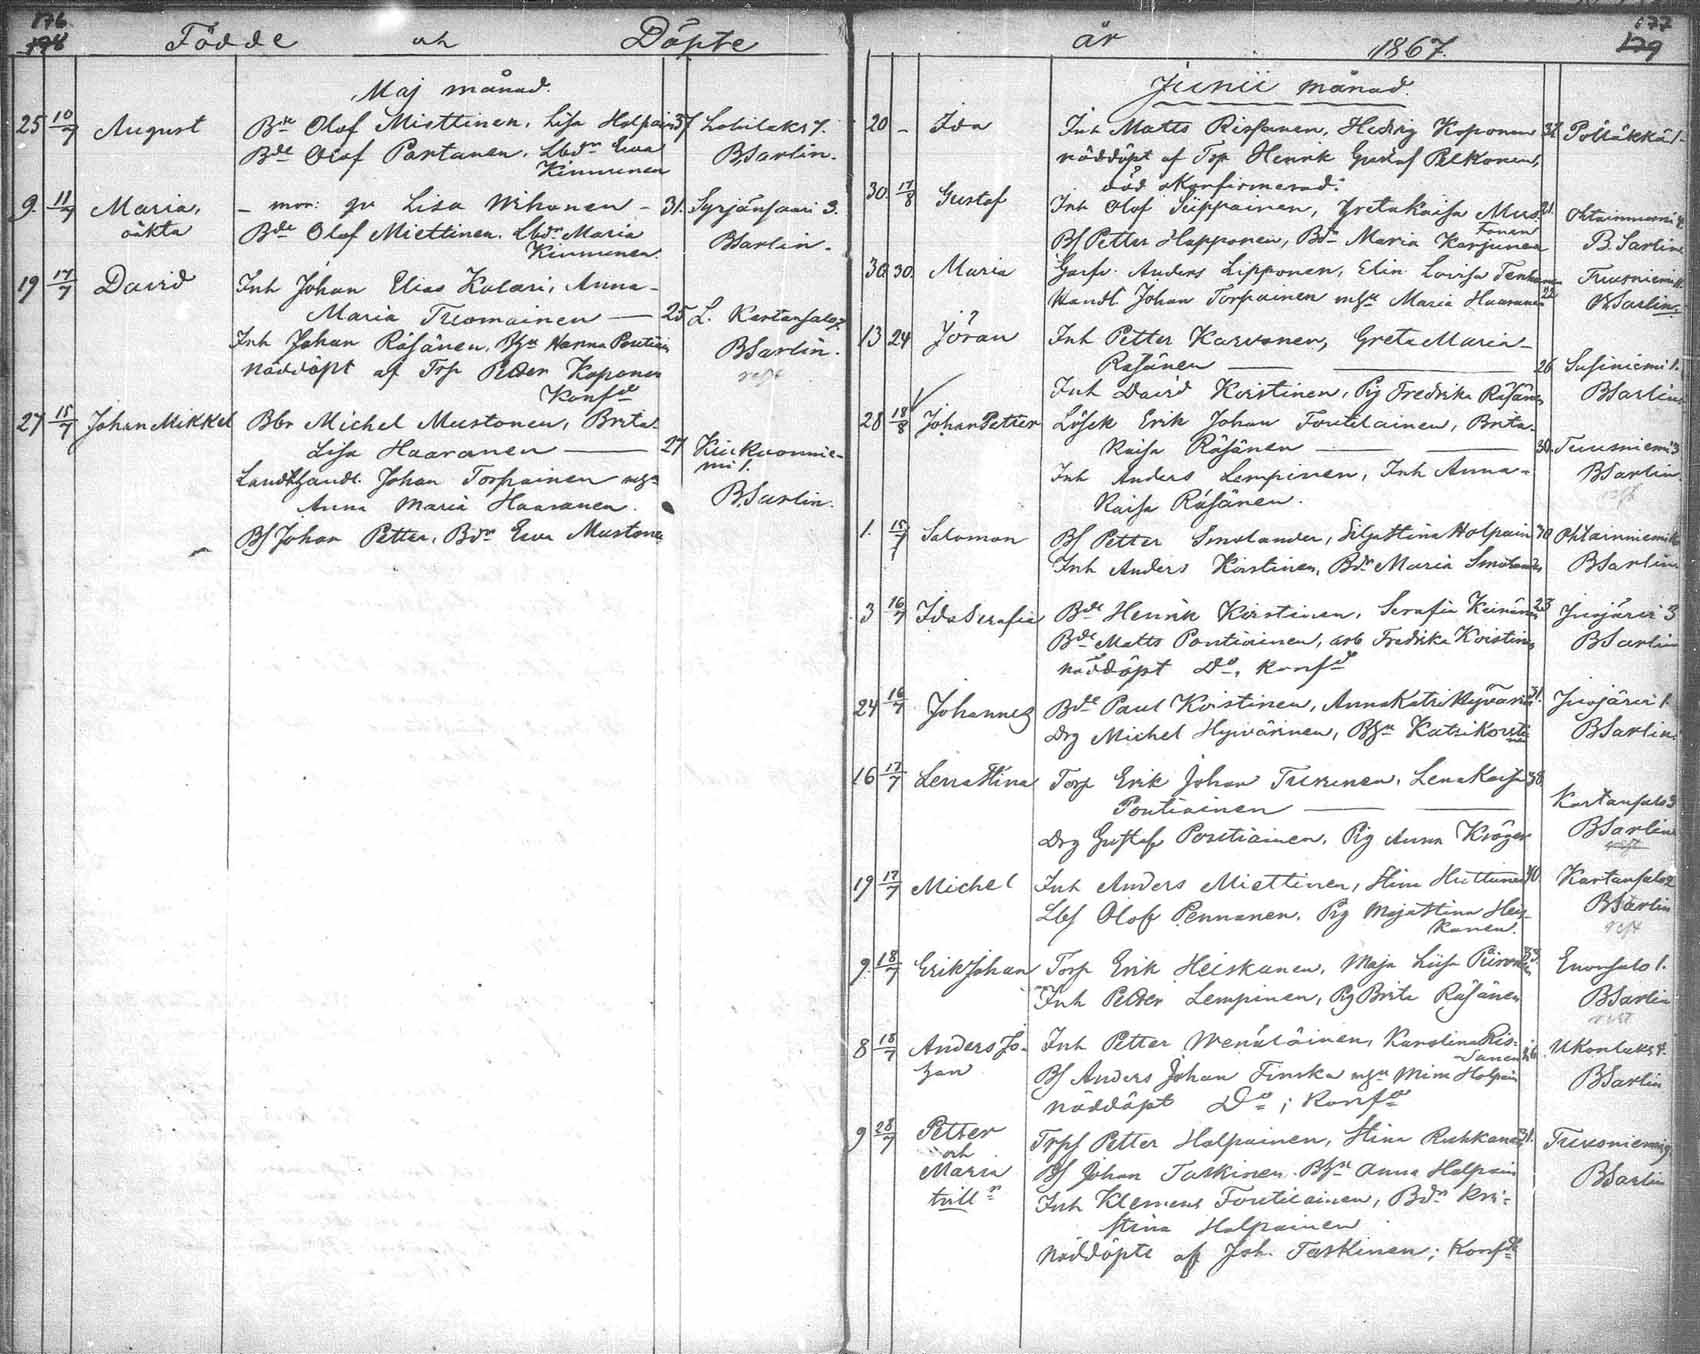 176
178
Födde och Döpte
Maj månad.
25 10/7 August Bde Olof Miettinen, Lisa Halpain 37 Lohilaks 7.
Bde Olof Partanen, Lbdr Ewa BSarlin.
Kinnunen
9. 11/7 Maria, — mor: qv Lisa Wihonen — 31. Syrjänsaari 3.
oäkta Bde Olof Miettinen. Lbdr Maria BSarlin.
Kinnunen.
19 17/7 David Inh Johan Elias Kalari, Anna-
Maria Tuomainen — 25 L. Kartansalo 7.
Inh Johan Räsänen, Hanna Pontiain BSarlin.
nöddöpt af Trp Petter Koponen
Konfd
27 15/7 Johan Mikkel Bbr Michel Mustonen, Brita
Lisa Haaranen — 27 Kiukoonnie-
mi 1.
Landthandl. Johan Torpainen
Anna Maria Haaranen. BSarlin.
Bs Johan Petter, Bdr Ewa Mustone
177
179
år 1867.
Junii månad
20 - Ida Inh Matts Rissanen, Hedvig Koponen 32 Pölläkkä 1.
nöddöpt af Trp Henrik Gustaf Pelkonen,
död okonfirmerad.
30. 17/8 Gustaf Inh Olof Sippainen, Greta Kaisa Mus- 21.
tonen
Bs Petter Happonen, Bdr Maria Karjunen B. Sarlin
30 30. Maria Garfv. Anders Lipponen, Elin Lovisa Tenhunen Tuusniemi
22
Handl. Johan Torpainen Maria Haaranen BSarlin.
13 24 Jöran Inh Petter Karvonen, Greta Maria
Räsänen — 26 Susiniemi 1.
Inh David Koistinen, Pig Fredrika Räsänen BSarlin
28 18/8 Johan Petter Lösk Erik Johan Toutilainen, Brita
Kaisa Räsänen — 30. Tuusniemi 3
Inh Anders Lempinen, Inh Anna- BSarlin
Kaisa Räsänen.
1. 15/7 Salomon Bs Petter Smolander, Silja Stina Holpain 30 Ohtainniemi
Inh Anders Koistinen, Bdr Maria Smolander BSarlin
3 16/7 Ida Serafia Bde Henrik Koistinen, Serafia Keinänen 23 Juojärvi 3
Bde Matts Pontiainen, Fredrika Koistinen BSarlin
nöddöpt Do, konfd
24 16/7 Johannes Bde Paul Koistinen, Anna Katri Hyvärin 31. Juojärvi 1.
Drg Michel Hyvärinen, Katri Koisti BSarlin
nen
16 17/7 Lena Stina Torp Erik Johan Turunen, Lena Kaisa 38
Pontiainen — Kartansalo 3
Drg Gustaf Pontiainen, Pig Anna Kröger BSarlin
19 17/7 Michel Inh Anders Miettinen, Stina Huttunen 40 Kartansalo 2
Lbs Olof Pennanen, Pig Maja Stina Hey- BSarlin
kanen.
9. 18/7 Erik Johan Torp Erik Heiskanen, Maja Lisa 33. Enonsalo 1.
Inh Petter Lempinen, Pig Brita Räsänen BSarlin
8 18/7 Anders Jo- Inh Petter Wenäläinen, Karolina Ris- 26 Ukonlaks 4.
han sanen
Bs Anders Johan Finska Mina Holpain BSarlin
nöddöpt Do; Konfd
9 28/7 Petter Trps Petter Halpainen, Stina Ruhkanen 31. Tuusniemi 9
och
Maria Bs Johan Taskinen. Anna Halpain BSarlin
trill Inh Klemens Toutilainen, Bdr Kri-
stina Halpainen
nöddöpte af Joh. Taskinen; Konfde